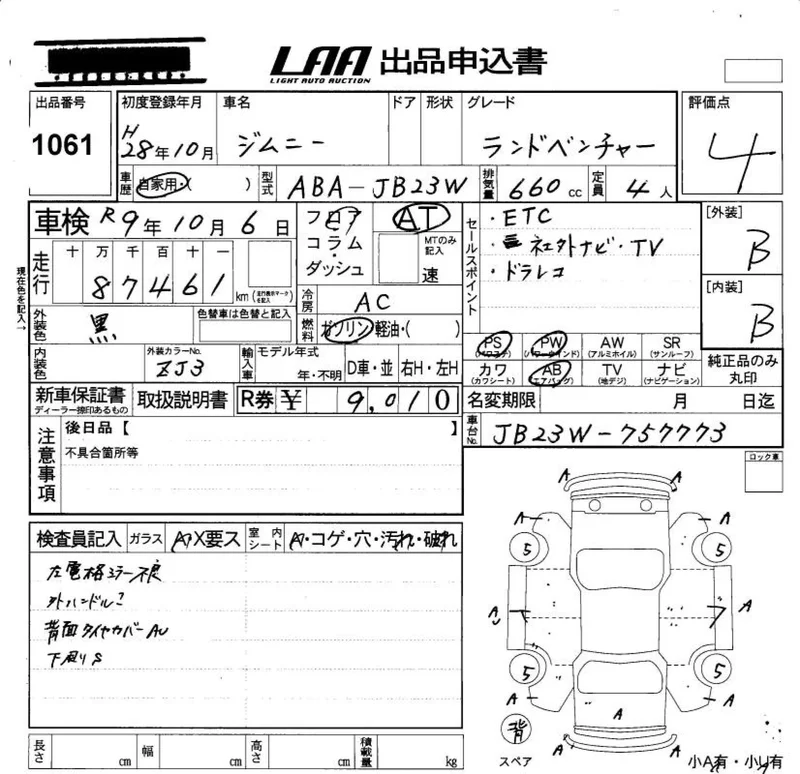 LAA 出品申込書
LIGHT AUTO AUCTION
出品番号 初度登録年月 車名 ドア 形状 グレード 評価点
1061 H28年10月 ジムニー ランドベンチャー 4
車歴 自家用・( ) 型式 ABA-JB23W 排気量 660cc 定員 4人
車検 R9年10月6日 フロア コラム・ダッシュ AT MTのみ記入 速
セールスポイント
・ETC
・社外ナビ・TV
・ドラレコ
[外装] B
[内装] B
現在色を記入→
走行 十 万 千 百 十 一
87461 km (走行表示マークを記入)
冷房 AC
外装色 黒 色替車は色替と記入 燃料 ガソリン・軽油・( )
内装色 外装カラーNo. ZJ3 輸入車 モデル年式 年・不明 D車・並 右H・左H
PS (パワステ) PW (パワーウインド) AW (アルミホイル) SR (サンルーフ)
カワ (カワシート) AB (エアバッグ) TV (地デジ) ナビ (ナビゲーション)
純正品のみ丸印
新車保証書 ディーラー捺印あるもの 取扱説明書 R券 ¥ 9,010
名変期限 月 日迄
車台No. JB23W-757773
注意事項 後日品【 】
不具合箇所等
ロック車
検査員記入 ガラス A・X要ス 室内シート A・コゲ・穴・汚れ・破れ
左電格ミラー不良
外ハンドル?
背面タイヤカバーAU
下廻りS
A A
A A
5 5
A A
5 5
A A
A
背 A A
スペア 小A有・小U有
長さ cm 幅 cm 高さ cm 積載量 kg